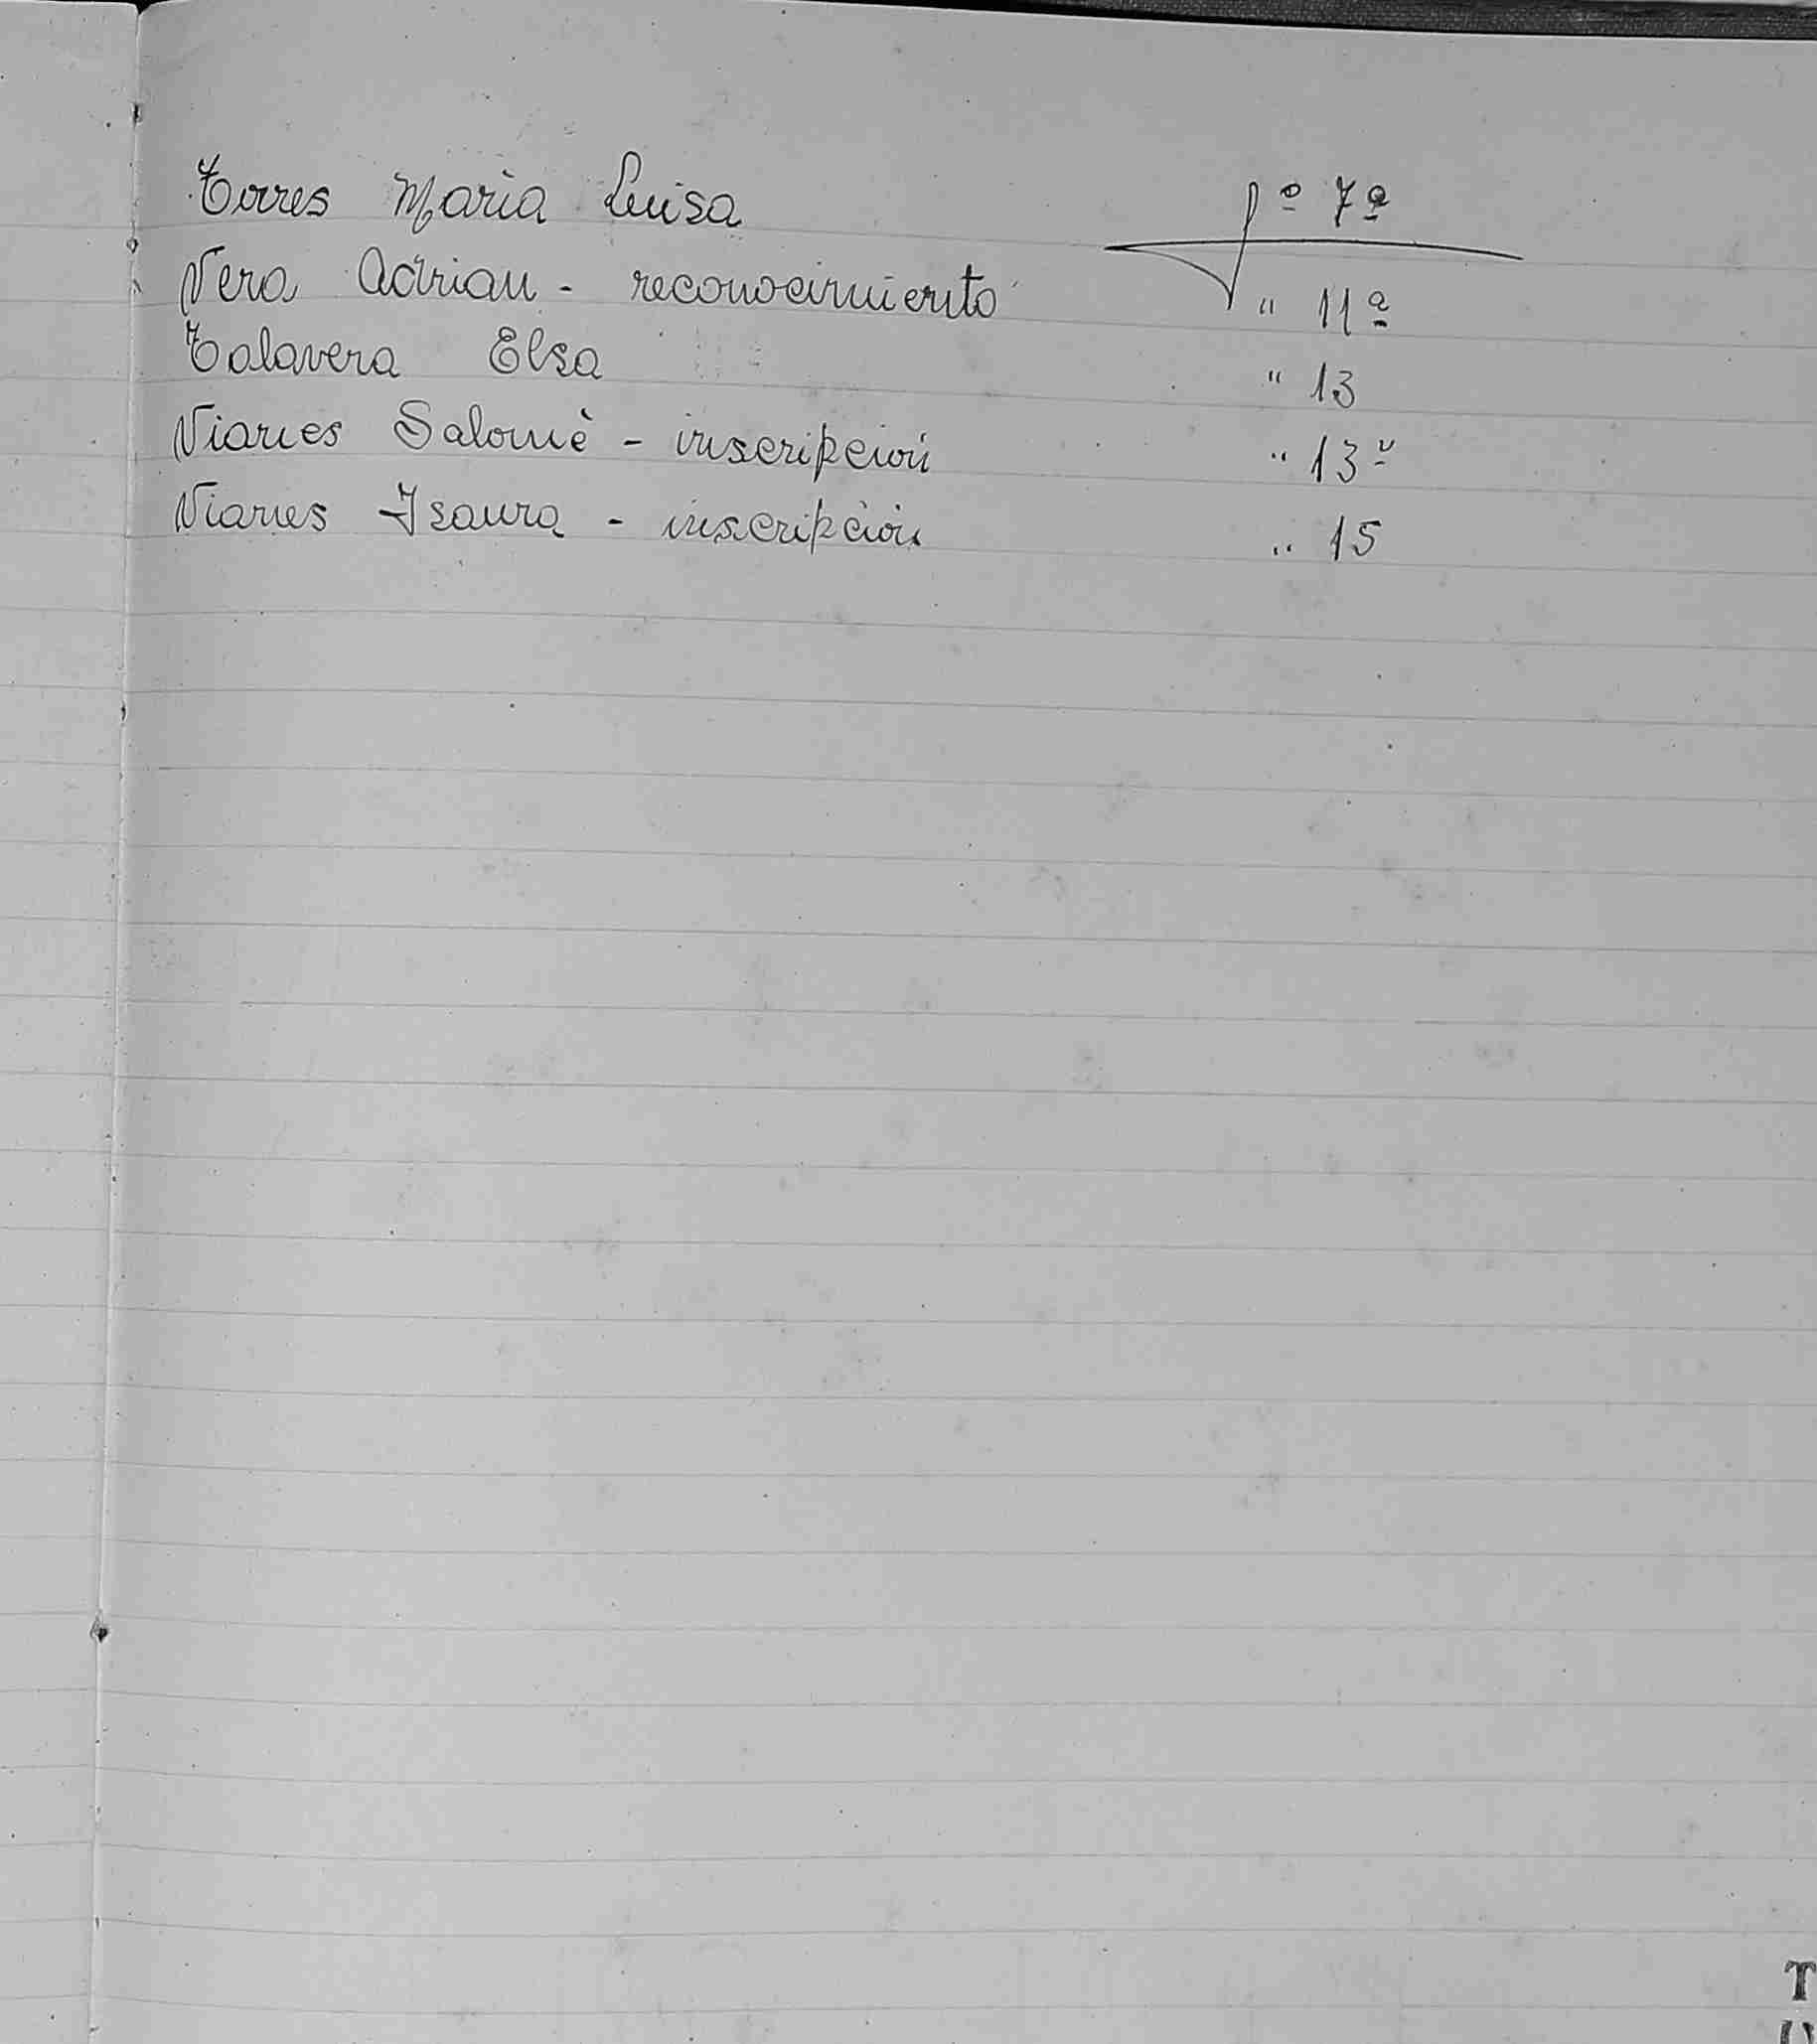 Torres Maria Luisa fº 7º
Vera Adrian - reconocimiento " 11º
Talavera Elsa " 13
Vianes Salomè - inscripción " 13v
Vianes Isaura - inscripción " 15
T